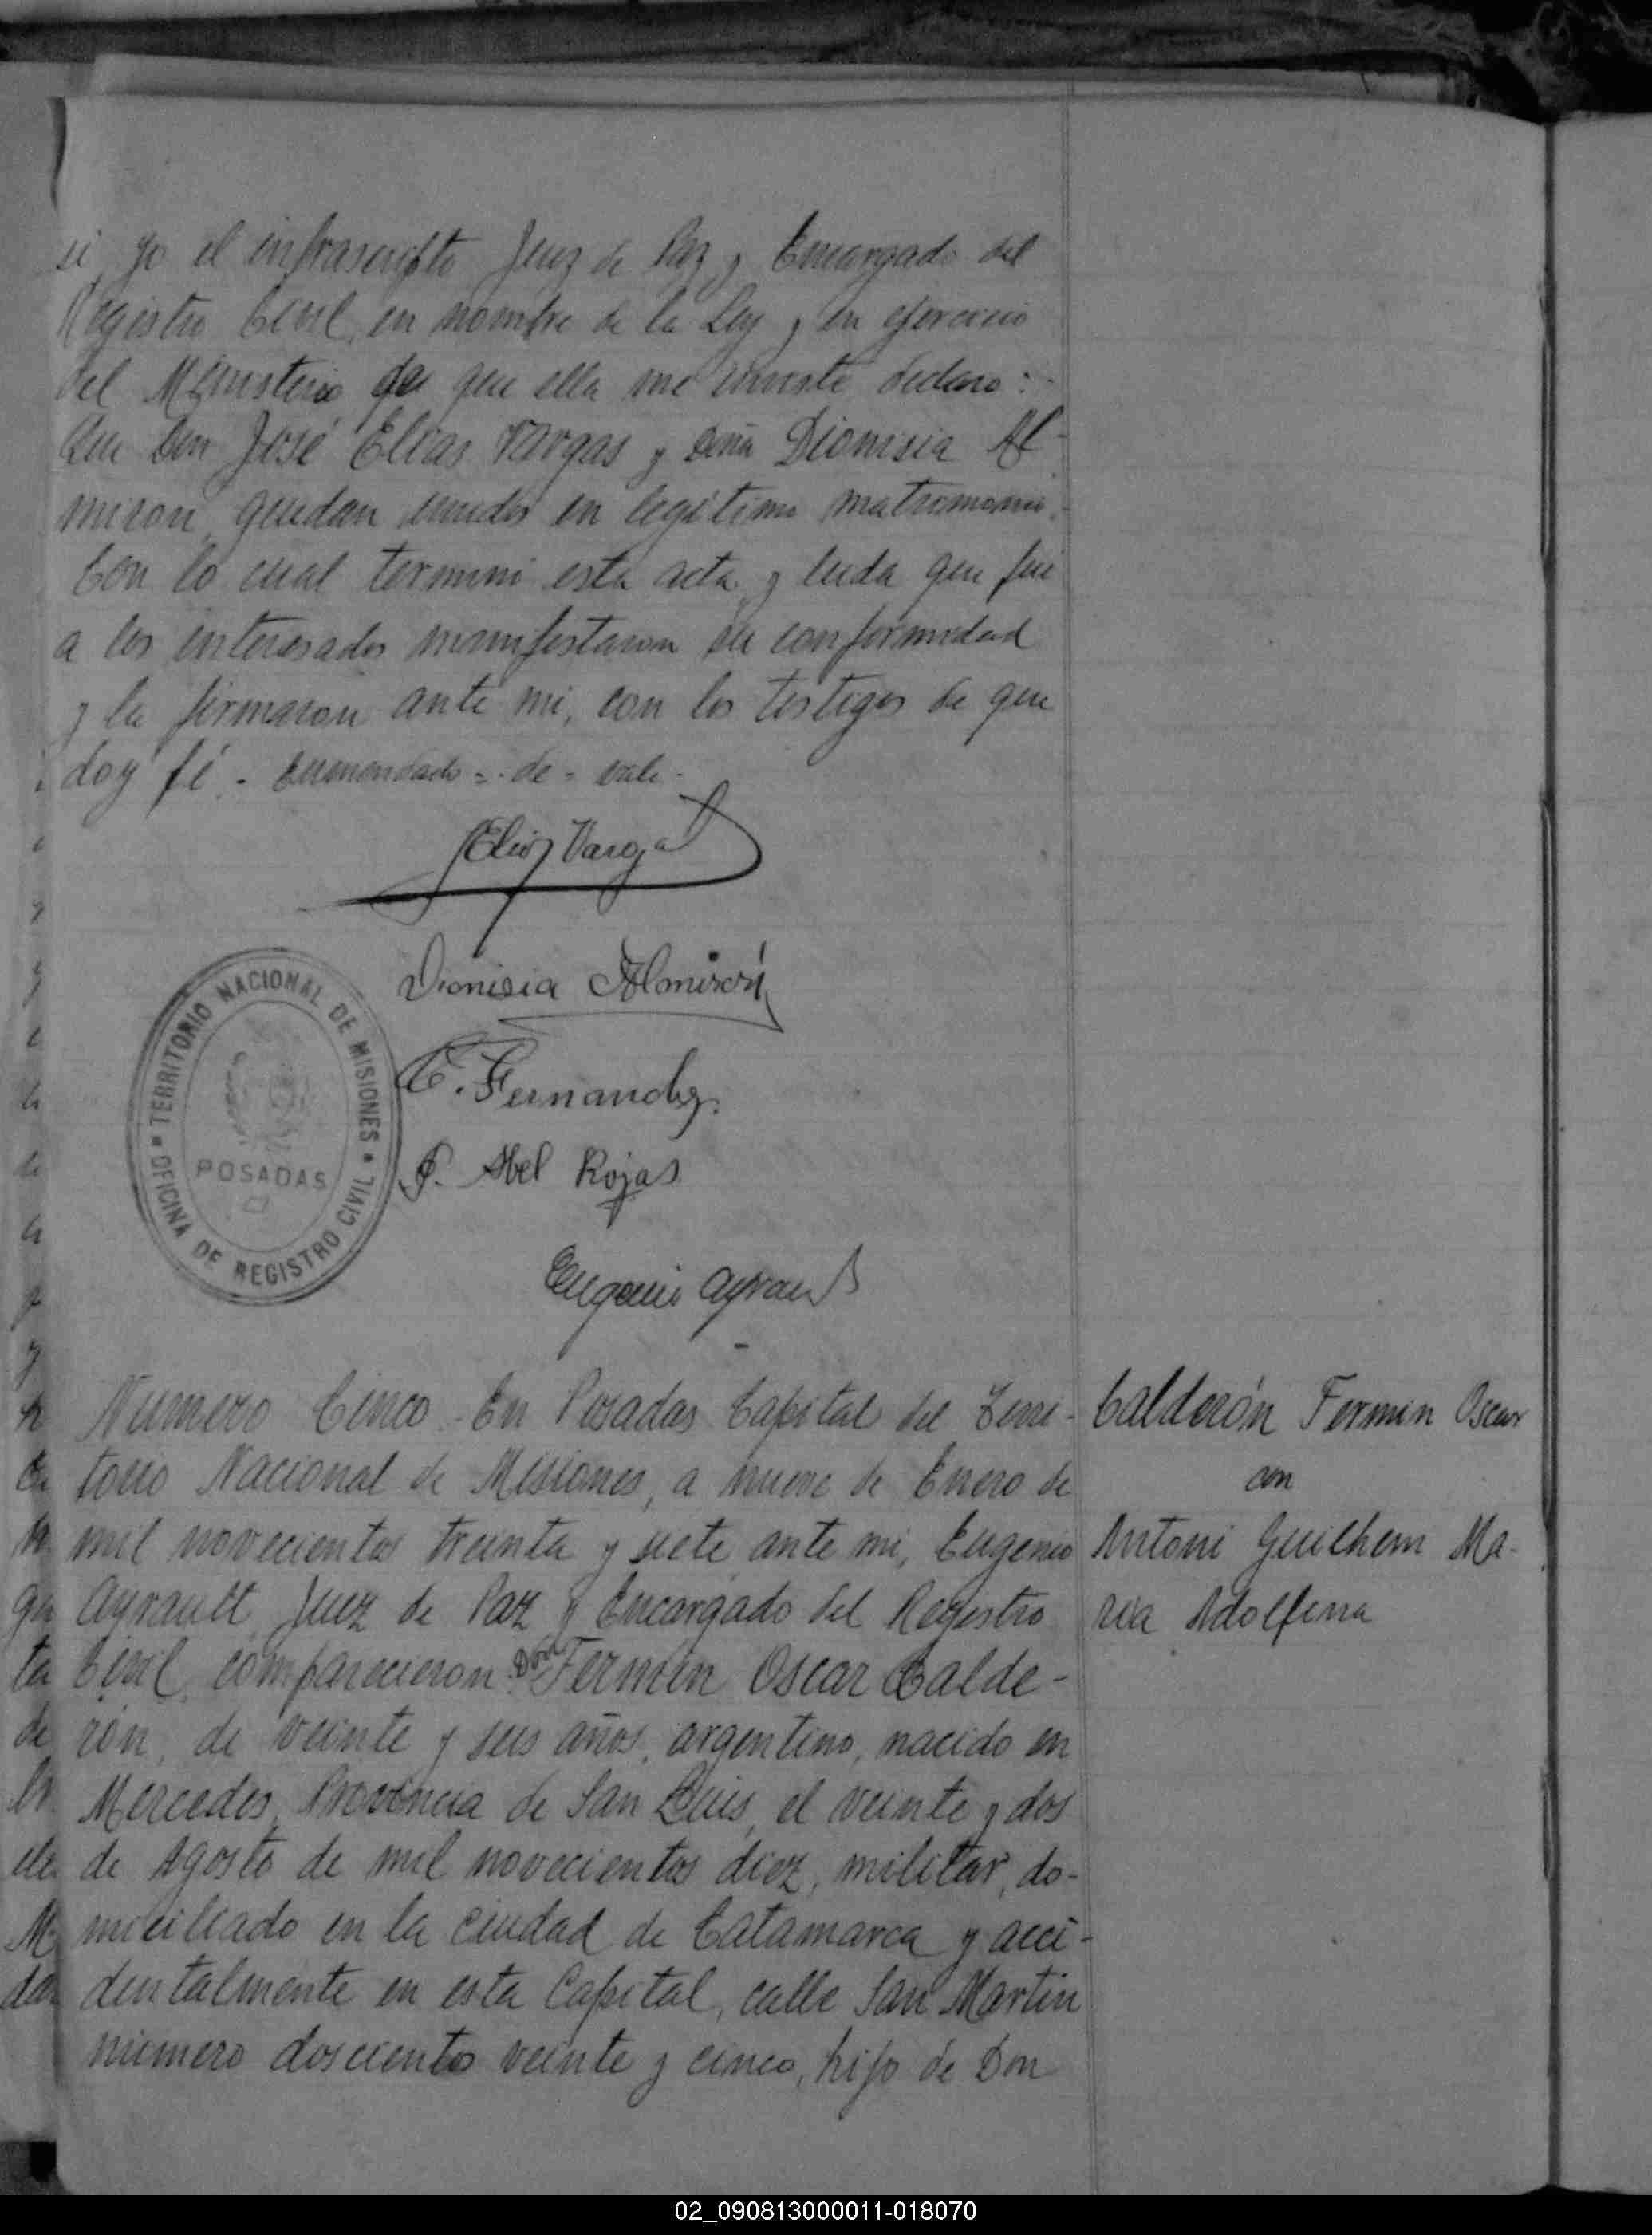 si, yo el infrascripto Juez de Paz y Encargado del
Registro Civil, en nombre de la Ley y en ejercicio
del Ministerio de que ella me inviste declaro:-
Que Don José Elias Vargas y doña Dionisia Al-
miron, quedan unidos en legitimo matrimonio.-
Con lo cual terminó esta acta, y leida que fué
a los interesados manifestaron su conformidad
y la firmaron ante mi, con los testigos de que
doy fé.- Enmendado =.de= vale.-
Elias Vargas
Dionisia Almirón
TERRITORIO NACIONAL DE MISIONES
OFICINA DE REGISTRO CIVIL
POSADAS
C. Fernandez.
Abel Rojas
Eugenio Ayrault
Numero Cinco. En Posadas Capital del Terri-
torio Nacional de Misiones, a nueve de Enero de
mil novecientos treinta y siete ante mi, Eugenio
Ayrault, Juez de Paz y Encargado del Registro
Civil, comparecieron: Don Fermin Oscar Calde-
rón, de veinte y seis años, argentino, nacido en
Mercedes, Provincia de San Luis, el veinte y dos
de Agosto de mil novecientos diez, militar, do-
miciliado en la ciudad de Catamarca y acci-
dentalmente en esta Capital, calle San Martin
número doscientos veinte y cinco, hijo de Don
Calderón Fermin Oscar
con
Antoni Guilhem Ma-
ria Adolfina
02_090813000011-018070